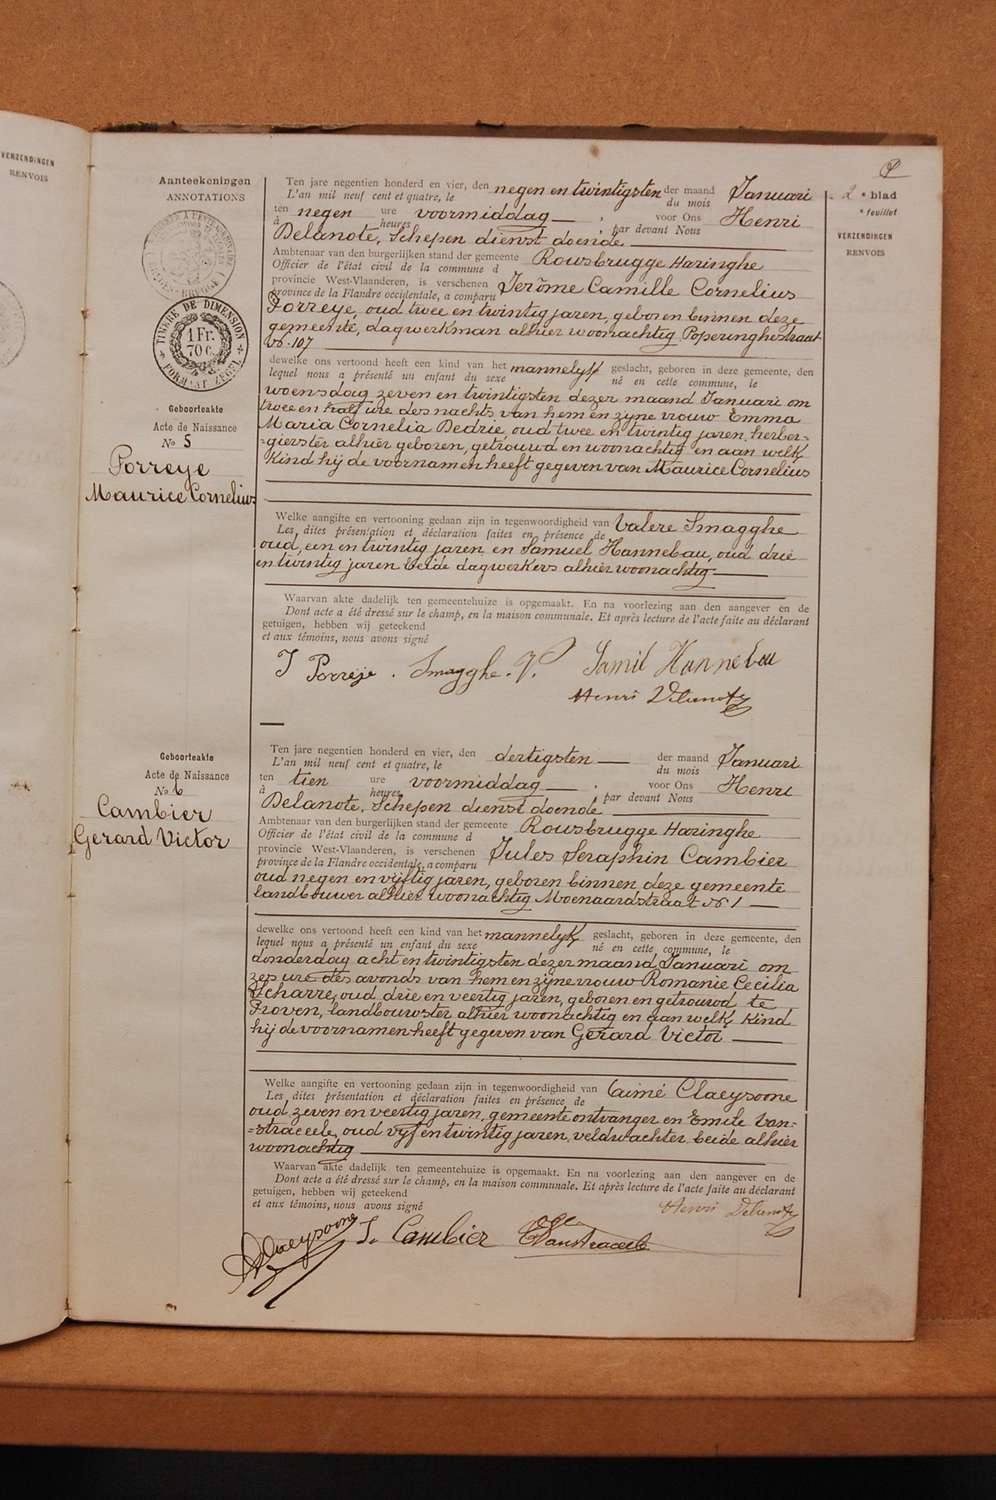 VERZENDINGEN
RENVOIS
Aanteekeningen
ANNOTATIONS
TIMBRE DE DIMENSION
1 Fr.
70 c.
FORMAAT ZEGEL
2e blad
e feuillet
VERZENDINGEN
RENVOIS
Geboorteakte
Acte de Naissance
No 5
Porreye
Maurice Cornelius
Ten jare negentien honderd en vier, den negen en twintigsten der maand Januari
L'an mil neuf cent et quatre, le du mois
ten negen ure voormiddag voor Ons Henri
à heures par devant Nous
Delanote, Schepen dienst doende
Ambtenaar van den burgerlijken stand der gemeente Rousbrugge Haringhe
Officier de l'état civil de la commune d
provincie West-Vlaanderen, is verschenen Jerôme Camille Cornelius
province de la Flandre occidentale, a comparu
Porreye, oud twee en twintig jaren, geboren binnen deze
gemeente, dagwerkman alhier woonachtig Poperinghestraat
No 107
dewelke ons vertoond heeft een kind van het mannelyk geslacht, geboren in deze gemeente, den
lequel nous a présenté un enfant du sexe né en cette commune, le
woensdag zeven en twintigsten dezer maand Januari om
twee en half ure des nachts van hem en zyne vrouw Emma
Maria Cornelia Dedrie, oud twee en twintig jaren, herber-
=gierster alhier geboren, getrouwd en woonachtig en aan welk
kind hij de voornamen heeft gegeven van Maurice Cornelius
Welke aangifte en vertooning gedaan zijn in tegenwoordigheid van Valere Smagghe
Les dites présentation et déclaration faites en présence de
oud, een en twintig jaren en Samuel Hannebau, oud drie
en twintig jaren beide dagwerkers alhier woonachtig
Waarvan akte dadelijk ten gemeentehuize is opgemaakt. En na voorlezing aan den aangever en de
Dont acte a été dressé sur le champ, en la maison communale. Et après lecture de l'acte faite au déclarant
getuigen, hebben wij geteekend
et aux témoins, nous avons signé
J Porreye. Smagghe. V. Samil Hannebau
Henri Delanote
Geboorteakte
Acte de Naissance
No 6
Cambier
Gerard Victor
Ten jare negentien honderd en vier, den dertigsten der maand Januari
L'an mil neuf cent et quatre, le du mois
ten tien ure voormiddag voor Ons Henri
à heures par devant Nous
Delanote, Schepen dienst doende
Ambtenaar van den burgerlijken stand der gemeente Rousbrugge Haringhe
Officier de l'état civil de la commune d
provincie West-Vlaanderen, is verschenen Jules Seraphin Cambier
province de la Flandre occidentale, a comparu
oud negen en vijftig jaren, geboren binnen deze gemeente
landbouwer alhier woonachtig Moenaardstraat No 1
dewelke ons vertoond heeft een kind van het mannelyk geslacht, geboren in deze gemeente, den
lequel nous a présenté un enfant du sexe né en cette commune, le
donderdag acht en twintigsten dezer maand Januari om
zes ure des avonds van hem en zijne vrouw Romanie Cecilia
Scharre, oud drie en veertig jaren, geboren en getrouwd te
Proven, landbouwster alhier woonachtig en aan welk kind
hij de voornamen heeft gegeven van Gerard Victor
Welke aangifte en vertooning gedaan zijn in tegenwoordigheid van Aimé Claeysoone
Les dites présentation et déclaration faites en présence de
oud zeven en veertig jaren, gemeente ontvanger en Emile Van-
=straceele, oud vyf en twintig jaren, veldwachter beide alhier
woonachtig
Waarvan akte dadelijk ten gemeentehuize is opgemaakt. En na voorlezing aan den aangever en de
Dont acte a été dressé sur le champ, en la maison communale. Et après lecture de l'acte faite au déclarant
getuigen, hebben wij geteekend
et aux témoins, nous avons signé
Henri Delanote
AClaeysoone J. Cambier EVanstraceele